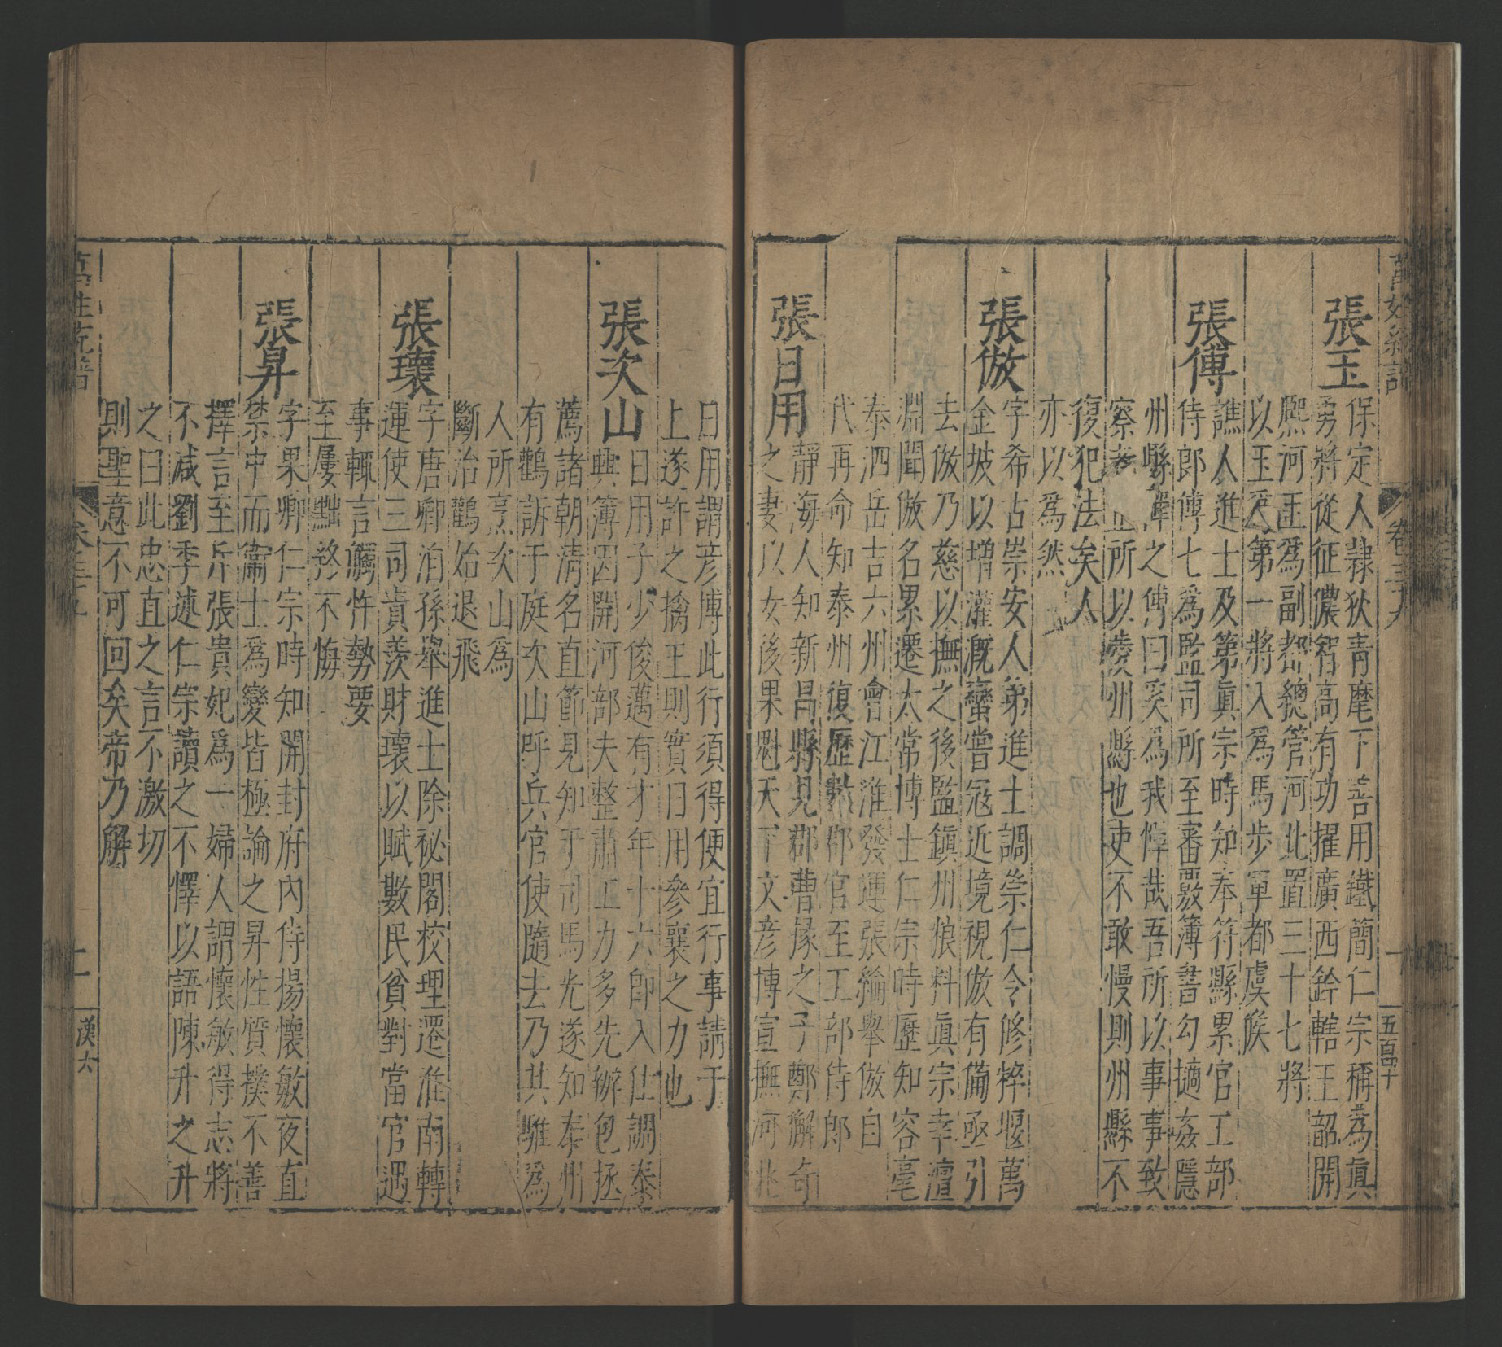 張玉
保定人隷狄青麾下善用鐵簡仁宗稱爲眞
勇將從征儂智高有功擢廣西鈐轄王韶開
熙河玉爲副都總管河北置三十七將
以玉爲第一將入爲馬步軍都虞候
張傅
譙人進士及第眞宗時知奉符縣累官工部
侍郎傅七爲監司所至審覈簿書勾擿姦隱
州縣憚之傅曰奚爲我憚哉吾所以事事致
察者 所以愛州縣也吏不敢慢則州縣不
復犯法矣人
亦以爲然
張倣
字希古崇安人第進士調崇仁令修梓堰萬
金坡以增灌漑蠻嘗冦近境視倣有備亟引
去倣乃慈以撫之後監鎭州粮料眞宗幸澶
淵聞倣名累遷太常博士仁宗時歷知容亳
泰泗岳吉六州會江淮發運張綸舉倣自
代再命知泰州復歷數郡官至工部侍郎
張日用
靜海人知新昌縣見郡曹掾之子鄭獬奇
之妻以女後果魁天下文彦博宣撫河北
日用謂彦博此行須得便宜行事請于
上遂許之擒王則實日用參襄之力也
張次山
日用子少俊邁有才年十六即入仕調泰
興簿因開河部夫整肅工力多先辦包拯
薦諸朝清名直節見知于司馬光遂知泰州
有鸛訴于庭次山呼兵官使隨去乃其雛爲
人所烹次山爲
斷治鸛始退飛
張瓌
字唐卿洎孫舉進士除祕閣校理遷淮南轉
運使三司責羨財瓌以賦數民貧對當官遇
事輒言觸忤勢要
至屢黜終不悔
張昇
字杲卿仁宗時知開封府內侍揚懷敏夜直
禁中而衞士爲變皆極論之昇性質撲不善
擇言至斥張貴妃爲一婦人謂懷敏得志將
不減劉季述仁宗讀之不懌以語陳升之升
之曰此忠直之言不激切
則聖意不可回矣帝乃解
二
漢六